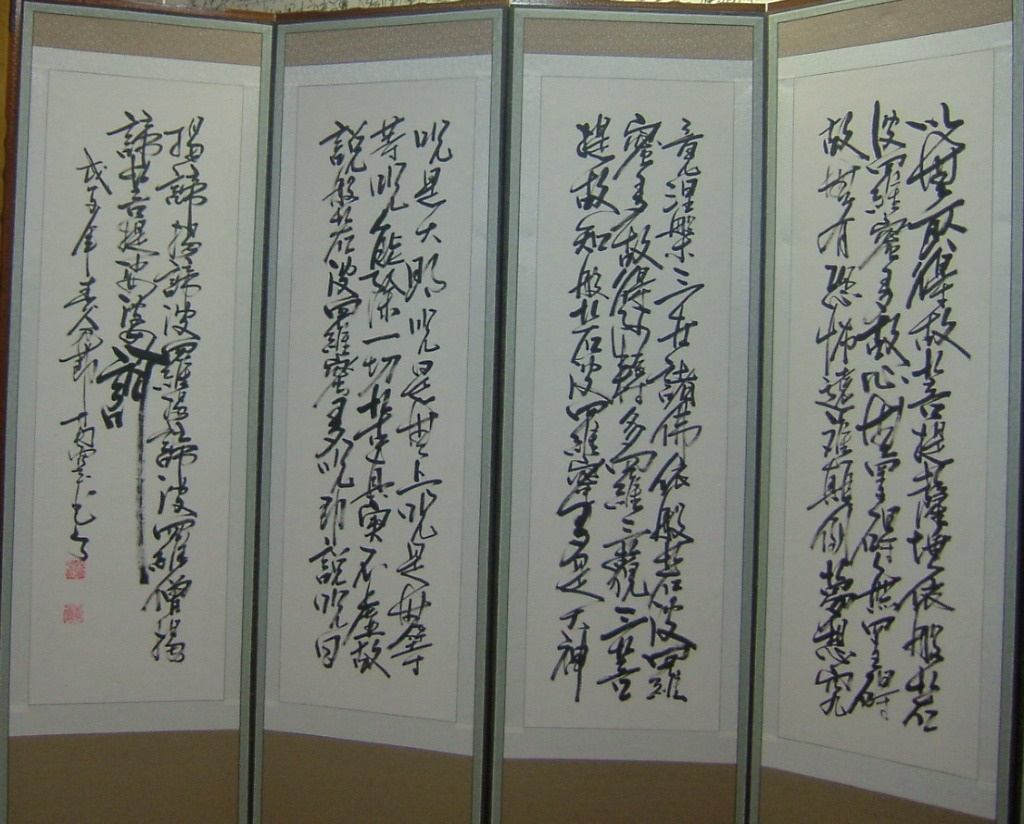 以無所得故菩提薩埵依般若
波羅蜜多故心無罣碍無罣碍
故無有恐怖遠離顛倒夢想究
竟涅槃三世諸佛依般若波羅
蜜多故得阿耨多羅三藐三菩
提故知般若波羅蜜多是大神
呪是大明呪是無上呪是無等
等呪能除一切苦真實不虛故
說般若波羅蜜多呪即說呪曰
揭諦揭諦波羅揭諦波羅僧揭
諦菩提娑婆訶
戊子年春分節